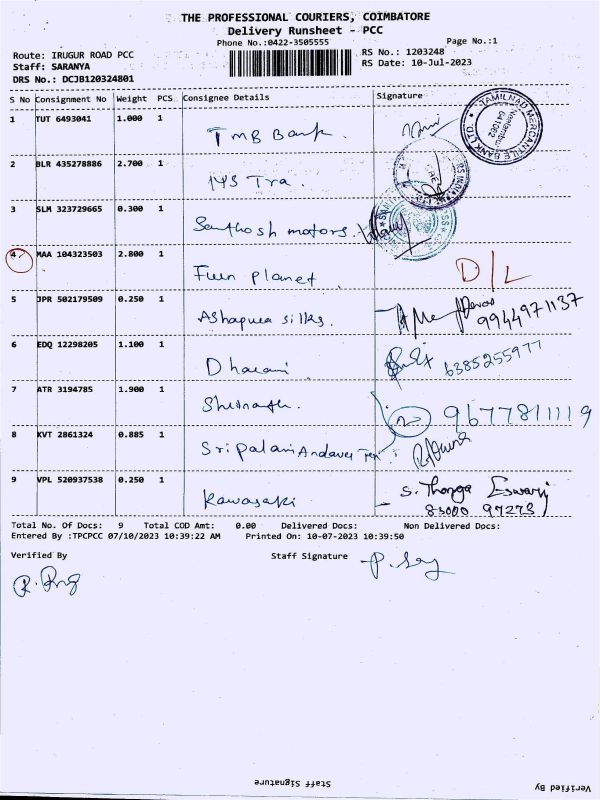 THE PROFESSIONAL COURIERS, COIMBATORE
Delivery Runsheet - PCC
Phone No.:0422-3505555
Page No.:1
Route: IRUGUR ROAD PCC
Staff: SARANYA
DRS No.: DCJB120324801
RS No.: 1203248
RS Date: 10-Jul-2023
S No Consignment No Weight PCS Consignee Details Signature
1 TUT 6493041 1.000 1 TMB Bank.
TAMILNAD MERCANTILE BANK LTD.
2 BLR 435278886 2.700 1 MS Tra.
3 SLM 323729665 0.300 1 Santhosh motors.
4 MAA 104323503 2.800 1 Fun planet D/L
5 JPR 502179509 0.250 1 Ashapura silks. 9944971137
6 EDQ 12298205 1.100 1 Dharani. 6385255977
7 ATR 3194785 1.900 1 9677811119
8 KVT 2861324 0.885 1 Sri Palani Andaver Tex
9 VPL 520937538 0.250 1 Kawasaki S. Thanga Eswari
83000 97273
Total No. Of Docs: 9 Total COD Amt: 0.00 Delivered Docs: Non Delivered Docs:
Entered By :TPCPCC 07/10/2023 10:39:22 AM Printed On: 10-07-2023 10:39:50
Verified By
Staff Signature
Staff Signature
Verified By